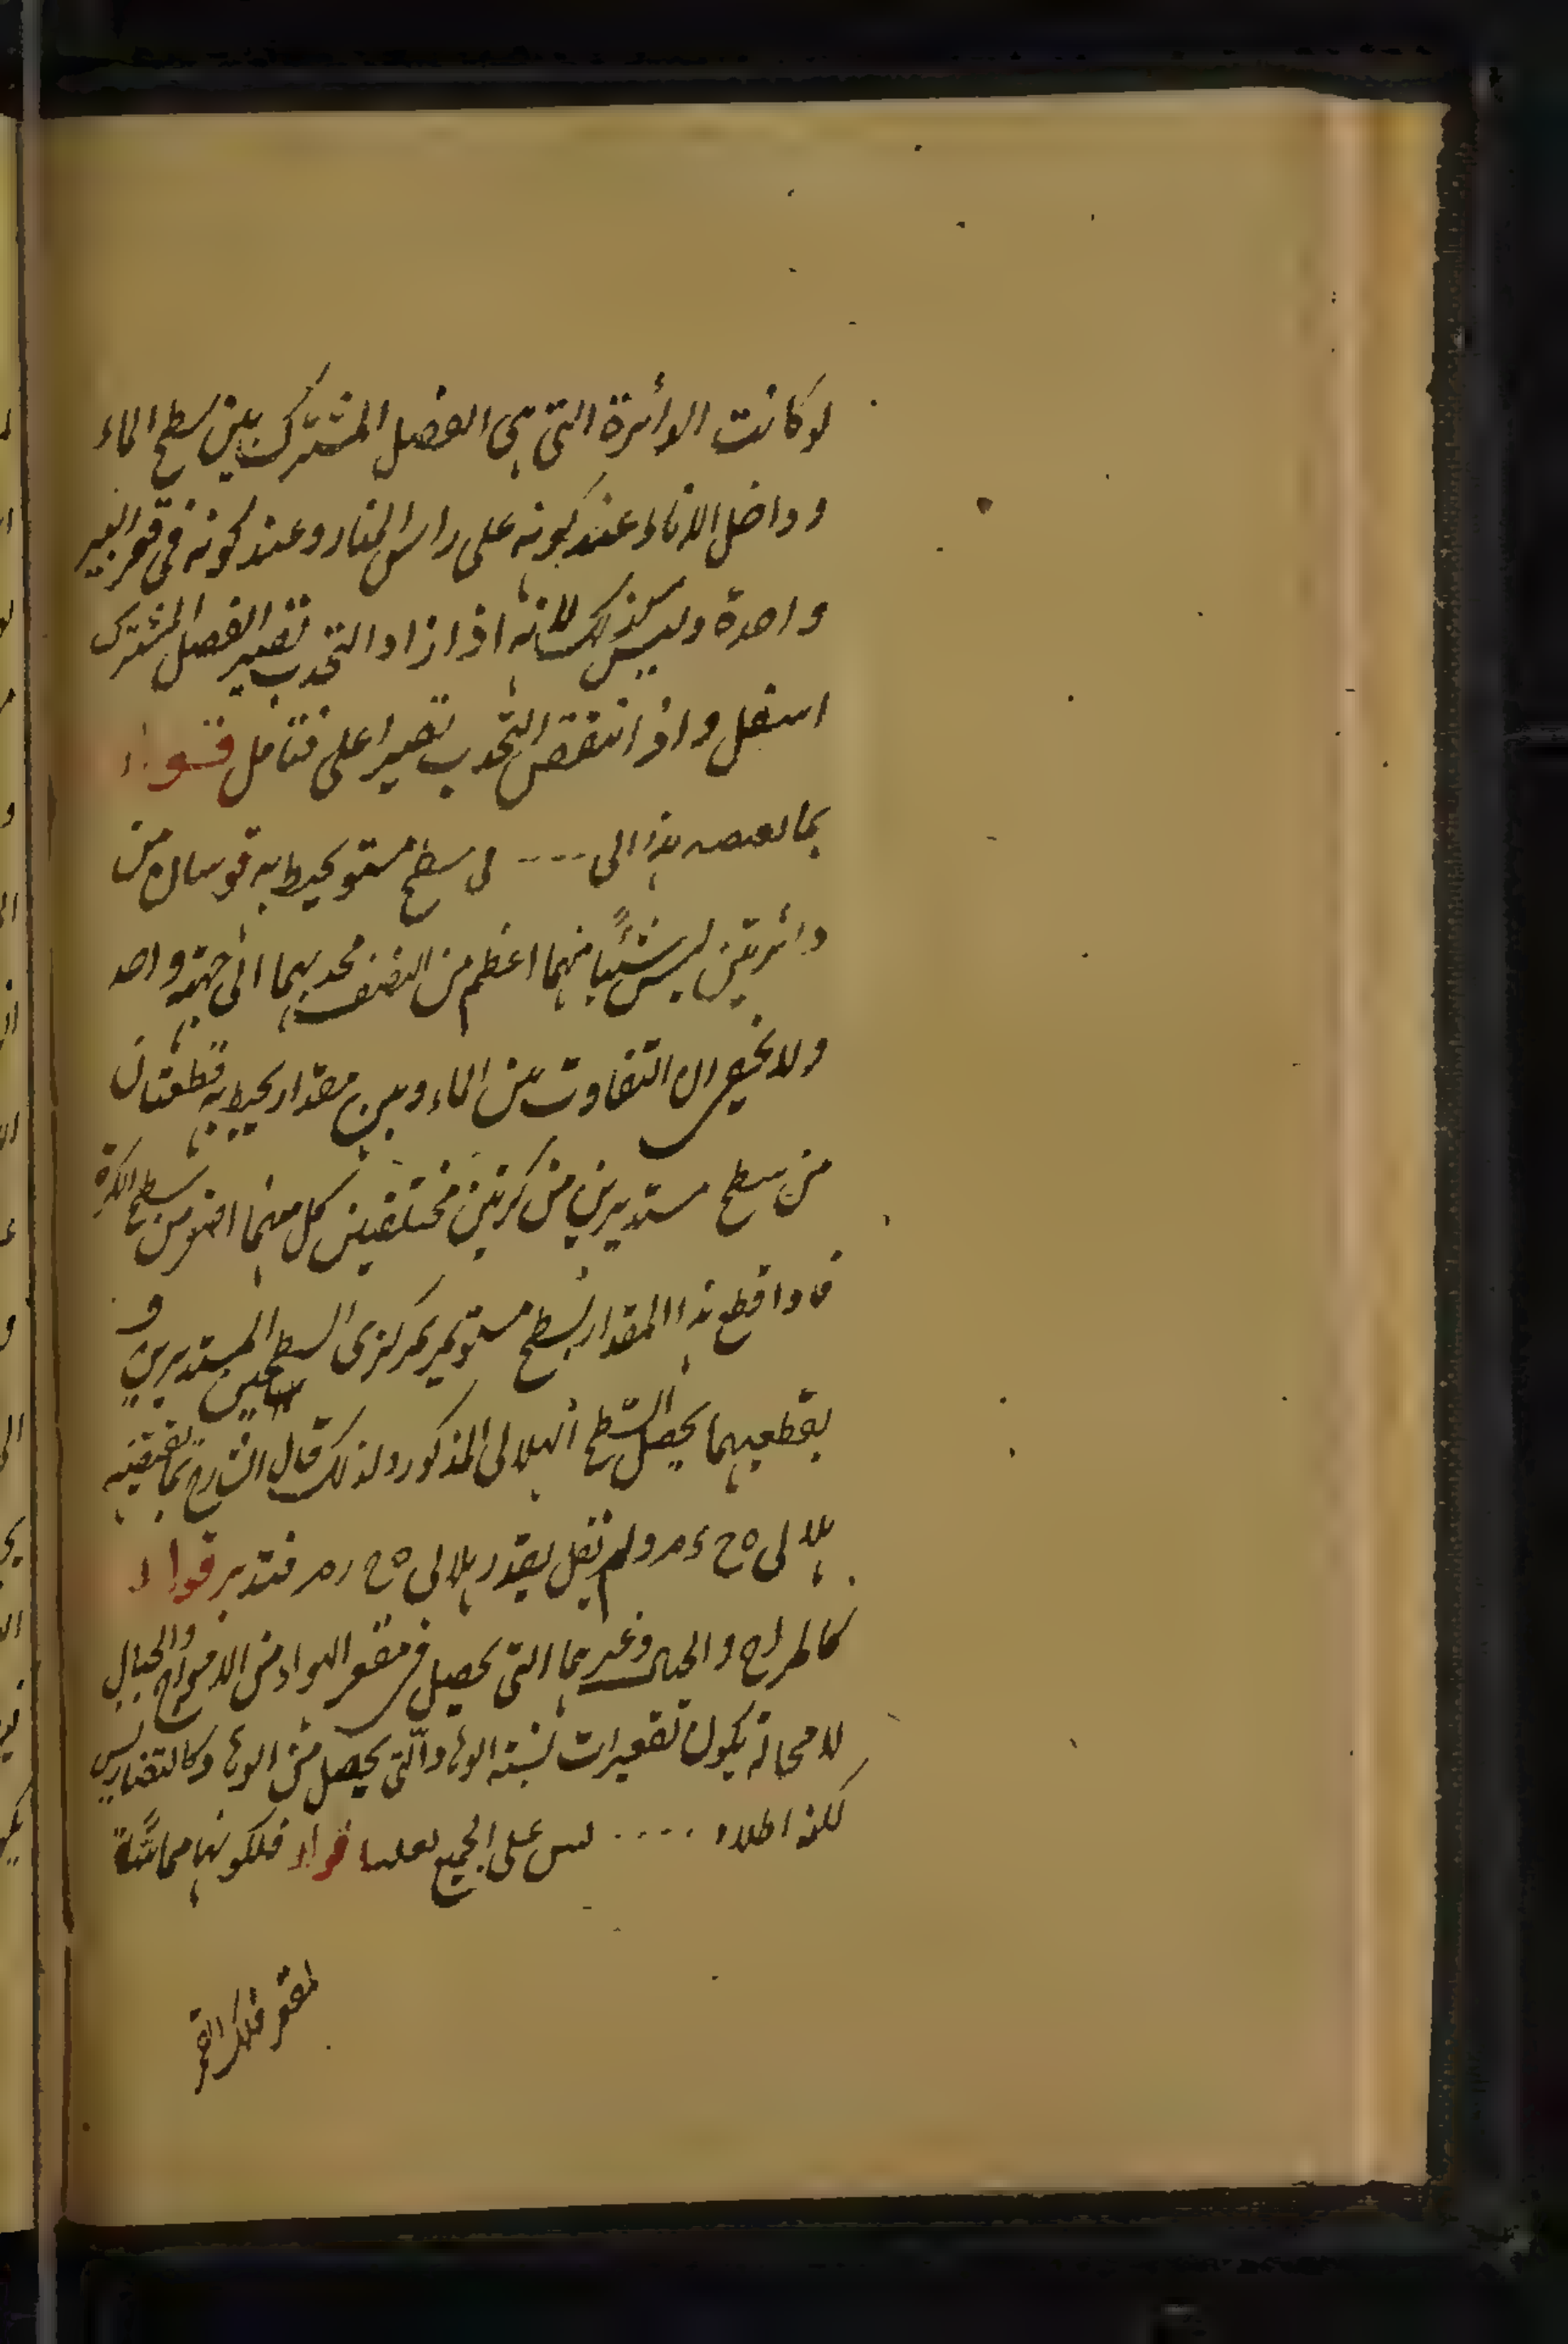 لو كانت الدائرة التى هى الفصل المشترك بين سطح الماء
و داخل الاناء عند كونه على راس المنار و عند كونه فى قعر البير
واحدة و ليس كذلك لانه اذا ازداد التحدب تصير الفصل المشترك
اسفل و اذا انتقص التحدب تصير اعلى فتامل قوله
هذا الى ---- سطح مستو يحيط به قوسان من
دائرتين ليس شيئًا منهما اعظم من النصف محدبهما الى جهة واحد
و لا يخفى ان التفاوت بين الماء و بين مقدار يحيط به قطعتان
من سطح مستديرين من كرتين مختلفين كل منهما اصغر من سطح الكرة
قطع هذا المقدار بسطح مستو يمر بمركزى السطحين المستديرين و
بقطعيهما يحصل السطح الهلالى المذكور و لذلك قال الشارح بما يقتضيه
هلالى ه ح ء م و لم يقل بقدر هلالى ه ح ر م فتدبر قوله
و الجبال و غيرهما التى يحصل فى مقعر الهواء من الامواج و الجبال
لا محالة يكون تقعيرات نسبته الوهاد التى يحصل من الوهاد كالتضاريس
لكنه .... ليس على الجميع قوله فلكونها مماسّة
لمقعر فلك القمر